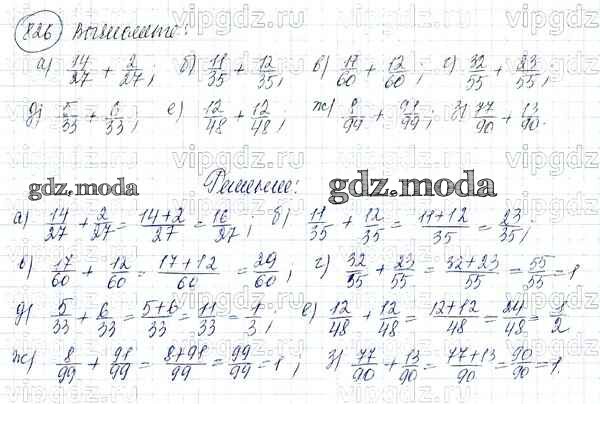 826 Вычислите:
а) 14/27 + 2/27; б) 11/35 + 12/35; в) 17/60 + 12/60; г) 32/55 + 23/55;
д) 5/33 + 6/33; е) 12/48 + 12/48; ж) 8/99 + 91/99; з) 77/90 + 13/90.
Решение:
gdz.moda gdz.moda
а) 14/27 + 2/27 = 14+2/27 = 16/27; б) 11/35 + 12/35 = 11+12/35 = 23/35;
в) 17/60 + 12/60 = 17+12/60 = 29/60; г) 32/55 + 23/55 = 32+23/55 = 55/55 = 1
д) 5/33 + 6/33 = 5+6/33 = 11/33 = 1/3; е) 12/48 + 12/48 = 12+12/48 = 24/48 = 1/2
ж) 8/99 + 91/99 = 8+91/99 = 99/99 = 1; з) 77/90 + 13/90 = 77+13/90 = 90/90 = 1.
vipgdz.ru